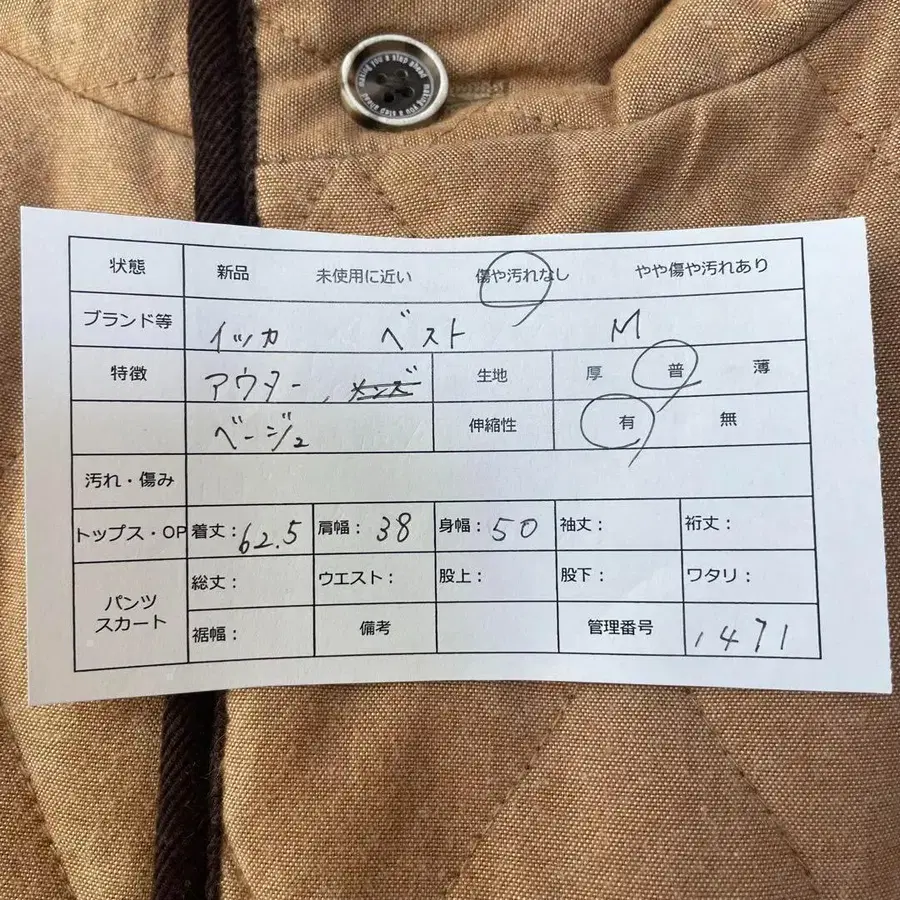 making you a step ahead making you a step ahead
状態 新品 未使用に近い 傷や汚れなし やや傷や汚れあり
ブランド等 イッカ ベスト M
特徴 アウター、メンズ 生地 厚 普 薄
ベージュ 伸縮性 有 無
汚れ・傷み
トップス・OP 着丈:62.5 肩幅:38 身幅:50 袖丈: 裄丈:
パンツ スカート 総丈: ウエスト: 股上: 股下: ワタリ:
裾幅: 備考 管理番号 1471